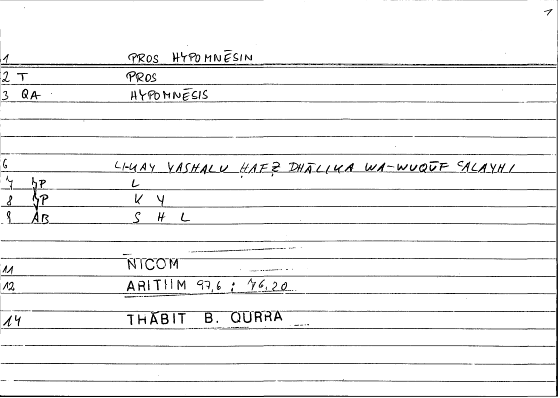 1
1 PROS HYPOMNĒSIN
2 T PROS
3 QA HYPOMNĒSIS
6 LI-KAY YASHALU ḤAFẒ DHĀLIKA WA-WUQŪF ʿALAYHI
7 L
8 K Y
9 AB S H L
11 NICOM
12 ARITHM 97,6 : 76,20
14 THĀBIT B. QURRA